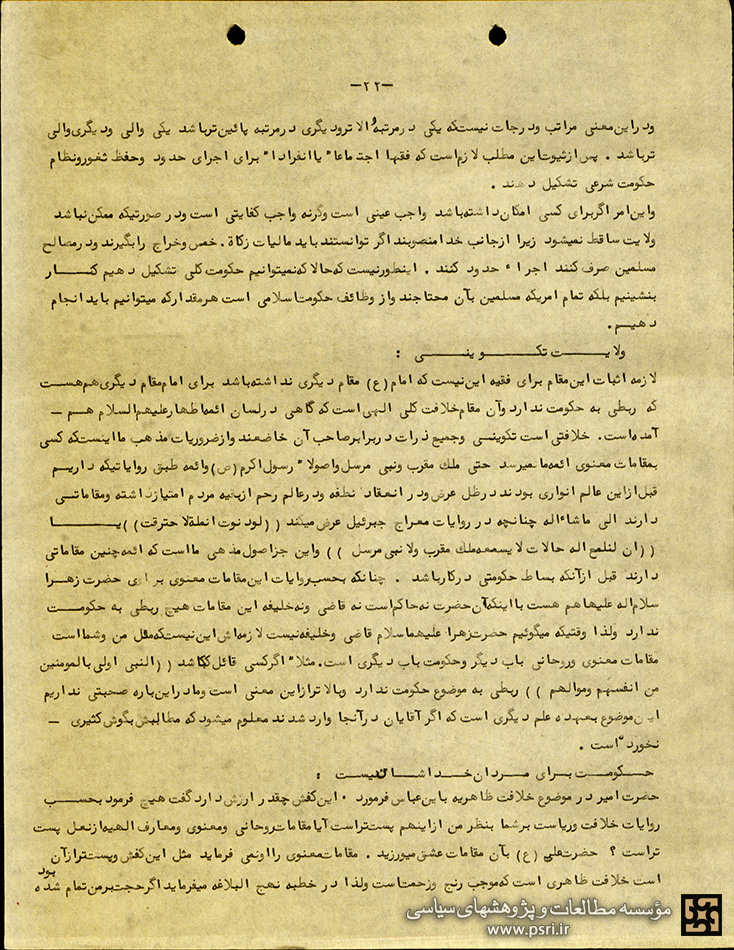 -۲۲-
ودراین معنی مراتب ودرجات نیستکه یکی درمرتبهٔ والا تر ودیگری درمرتبه پائین تر باشد یکی والی ودیگری والی
تر باشد . پس از ثبوت این مطلب لازم است که فقها اجتماعا" یا انفرادا" برای اجرای حدود وحفظ ثغور ونظام
حکومت شرعی تشکیل دهند .
واین امر اگر برای کسی امکان داشته باشد واجب عینی است وگرنه واجب کفایتی است ودر صورتیکه ممکن نباشد
ولایت ساقط نمیشود زیرا از جانب خدا منصوبند اگر توانستند باید مالیات زکاة . خمس وخراج را بگیرند ودرمصالح
مسلمین صرف کنند اجراء حدود کنند . اینطور نیست که حالا که نمیتوانیم حکومت کلی تشکیل دهیم کنـــار
بنشینیم بلکه تمام امریکه مسلمین بآن محتاجند واز وظائف حکومت اسلامی است هرمقدار که میتوانیم باید انجام
دهیـم .
ولایـــت تکـــویـنـــی :
لازمه اثبات این مقام برای فقیه این نیست که امام (ع) مقام دیگری نداشته باشد برای امام مقام دیگری هم هست
که ربطی به حکومت ندارد وآن مقام خلافت کلی الهی است که گاهی درلسان ائمه اطهار علیهم السلام هـم -
آمده است . خلافتی است تکوینی وجمیع ذرات دربرابر صاحب آن خاضعند واز ضروریات مذهب ما اینستکه کسی
بمقامات معنوی ائمه ما نمیرسد حتی ملک مقرب ونبی مرسل واصولا" رسول اکرم (ص) وائمه طبق روایاتیکه داریـم
قبل از این عالم انواری بودند درظل عرش ودر انعقاد نطفه ودرعالم رحم از بقیه مردم امتیاز داشته ومقاماتـی
دارند الی ماشاءاله چنانچه در روایات معراج جبرئیل عرض میکند ((لودنوت انملة لاحترقت)) یـــا
((ان لنا مع اله حالات لایسعه ملک مقرب ولا نبی مرسل )) واین جزاصول مذهبی ما است که ائمه چنین مقاماتی
دارند قبل از آنکه بساط حکومتی درکار باشد . چنانکه بحسب روایات این مقامات معنوی برای حضرت زهـرا
سلام اله علیها هم هست با اینکه آن حضرت نه حاکم است نه قاضی ونه خلیفه این مقامات هیچ ربطی به حکومـت
ندارد ولذا وقتیکه میگوئیم حضرت زهرا علیها سلام قاضی وخلیفه نیست لازمه اش این نیستکه مثل من وشما است
مقامات معنوی وروحانی باب دیگر وحکومت باب دیگری است. مثلا" اگرکسی قائل باشد ((النبی اولی بالمومنین
من انفسهم وموالهم )) ربطی به موضوع حکومت ندارد وبالا تر از این معنی است وما در این باره صحبتی نداریم
این موضوع بعهده علم دیگری است که اگر آقایان درآنجا وارد شدند معلوم میشود که مطالبش بگوش کثیری -
نخورده است .
حـکومـت بـرای مـردان خـدا شـان نیست :
حضرت امیر در موضوع خلافت ظاهریه باین عباس فرمورد . این کفش چقدر ارزش دارد گفت هیچ فرمود بحسـب
روایات خلافت وریاست برشما بنظر من از اینهم پست تر است آیا مقامات روحانی ومعنوی ومعارف الهیه از نعل پست
تر است ؟ حضرت علی (ع) بآن مقامات عشق میورزید . مقامات معنوی را اونمی فرماید مثل این کفش وپست تر از آن بود
است خلافت ظاهری است که موجب رنج وزحمت است ولذا در خطبه نهج البلاغه میفرماید اگر حجت برمن تمام شده
مؤسسه مطالعات و پژوهشهای سیاسی
www.psri.ir